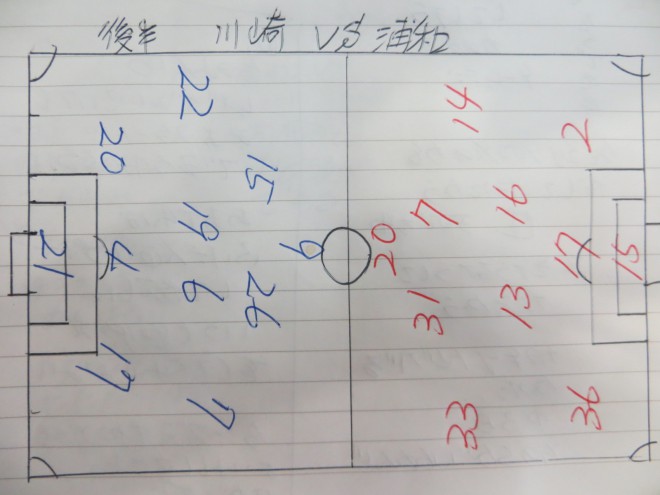 後半 川崎 VS 浦和
22
20
15
19
4
21
6
26
9
17
7
14
2
7
16
20
17
15
31
13
33
36